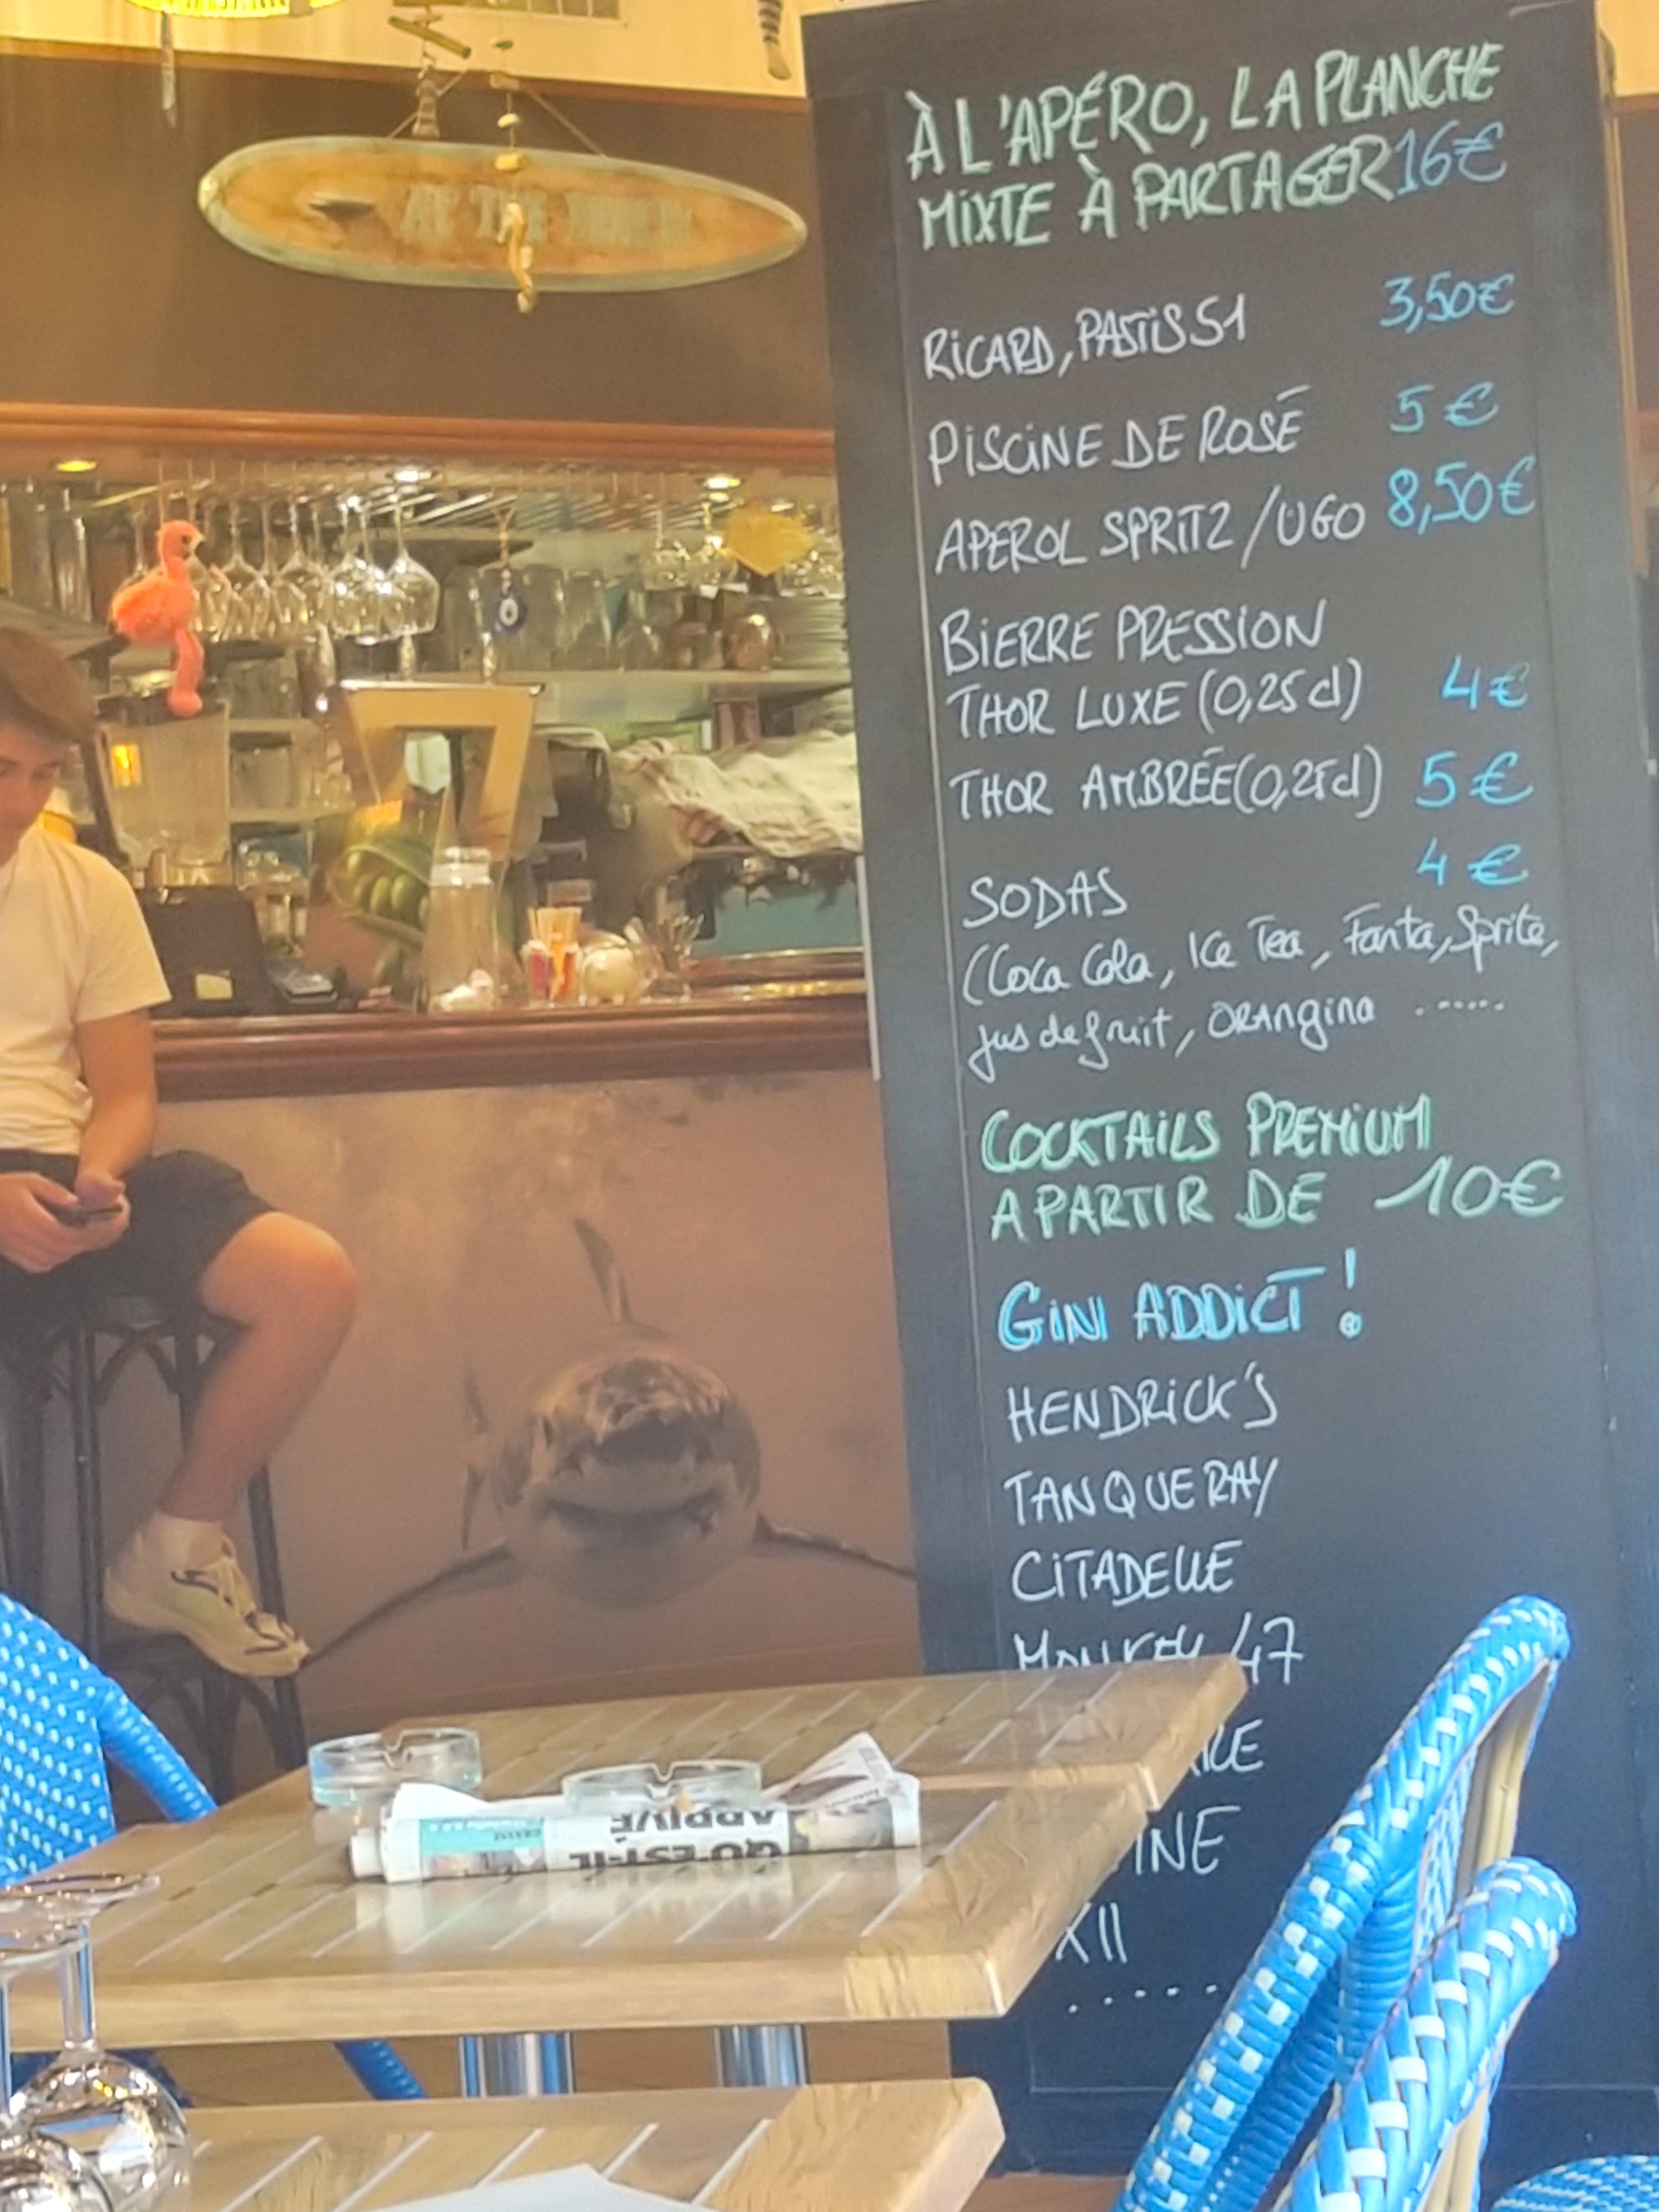 AT THE BEACH
À L'APÉRO, LA PLANCHE
MIXTE À PARTAGER 16€
RICARD, PASTIS 51 3,50€
PISCINE DE ROSÉ 5 €
APEROL SPRITZ / UGO 8,50€
BIERRE PRESSION
THOR LUXE (0,25 cl) 4€
THOR AMBRÉE (0,25cl) 5€
SODAS 4 €
(Coca Cola, Ice Tea, Fanta, Sprite,
jus de fruit, ORANgina .......
COCKTAILS PREMIUM
A PARTIR DE 10€
GIN ADDICT !
HENDRICK'S
TANQUERAY
CITADELLE
MONKEY 47
INE
XII
......
QU'EST-IL
ARRIVÉ